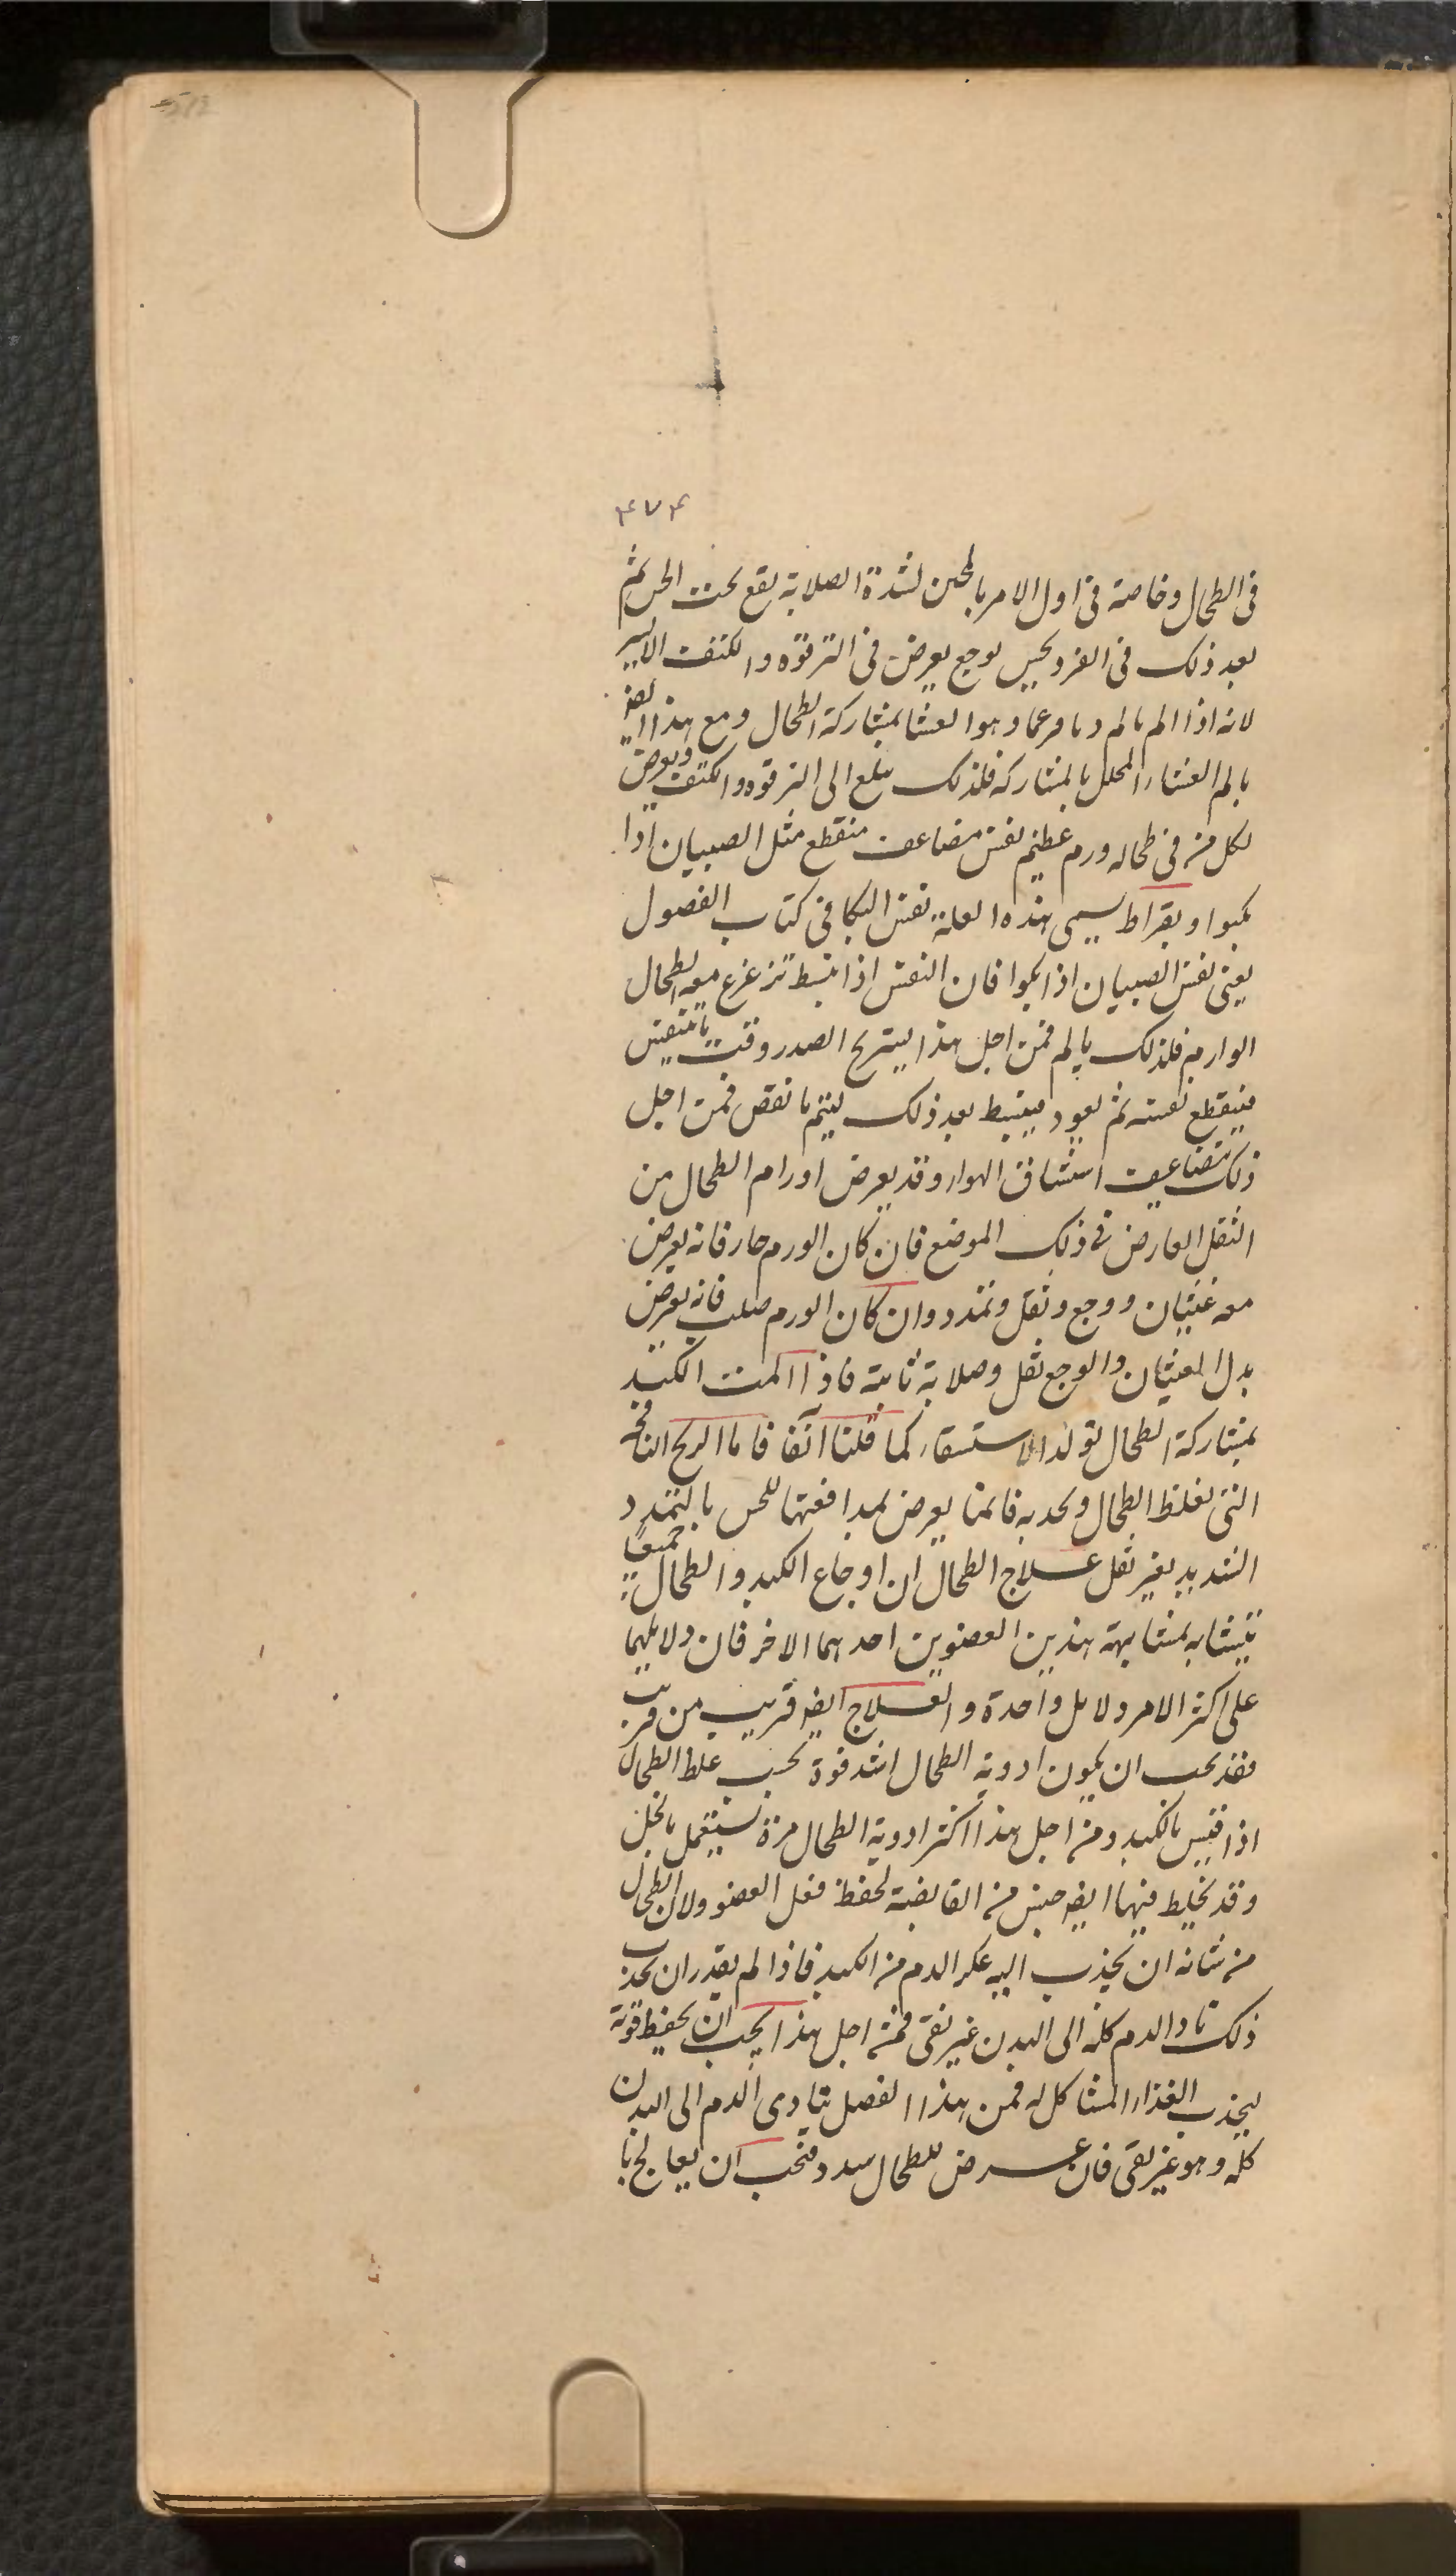 ۴۷۴
فى الطحال وخاصة فى اول الامر بالمجس لشدة الصلابة يقع تحت الحس ثم
بعد ذلك فى الفرويحس بوجع يعرض فى الترقوة والكتف الايسر
لانه اذا الم يالم ديافرغما وهو الغشا بمشاركة الطحال ومع هذا ايضا
يالم الغشاء المحلل بالمشاركة فلذلك يبلغ الى الترقوه والكتف ويعرض
لكل من فى طحاله ورم عظيم نفس مضاعف منقطع مثل الصبيان اذا
بكوا وبقراط يسمى هذه العلة نفس البكا فى كتاب الفصول
يعنى نفس الصبيان اذا بكوا فان النفس اذا انبسط تزعزع معه الطحال
الوارم فلذلك يالم فمن اجل هذا يستريح الصدر وقت يا يتنفس
فينقطع نفسه ثم يعود فينبسط بعد ذلك ليتم ما نقص فمن اجل
ذلك يتضاعف استنشاق الهواء وقد يعرض اورام الطحال من
الثقل العارض فى ذلك الموضع فان كان الورم حار فانه يعرض
معه غثيان ووجع وثقل وتمدد وان كان الورم صلب فانه يعرض
بدل الغثيان والوجع ثقل وصلابة ثابتة فاذا المت الكبد
بمشاركة الطحال تولد الاستسقاء كما قلنا آنفا فاما الريح النافخة
التى تغلظ الطحال وتحدبه فانما يعرض بمدافعتها للحس بالتمدد
الشديد بغير ثقل علاج الطحال ان اوجاع الكبد والطحال جميعًا
تتشابه بمشابهة هذين العضوين احدهما الاخر فان دلايلهما
على اكثر الامر دلايل واحدة والعلاج ايضا قريب من قريب
فقد يجب ان يكون ادوية الطحال اشد قوة بحسب غلظ الطحال
اذا قيس بالكبد ومن اجل هذا اكثر ادوية الطحال مرة تستعمل بالخل
وقد يخلط فيها ايضا جنس من القابضة لحفظ فعل العضو ولان الطحال
من شانه ان يجذب اليه عكر الدم من الكبد فاذا لم يقدر ان يجذب
ذلك تادا الدم كله الى البدن غير نقى فمن اجل هذا يجب ان يحفظ قوته
ليجذب الغذاء المشاكل له فمن هذا الفصل يتادى الدم الى البدن
كله وهو غير نقى فان عرض للطحال سدد فيجب ان يعالج با